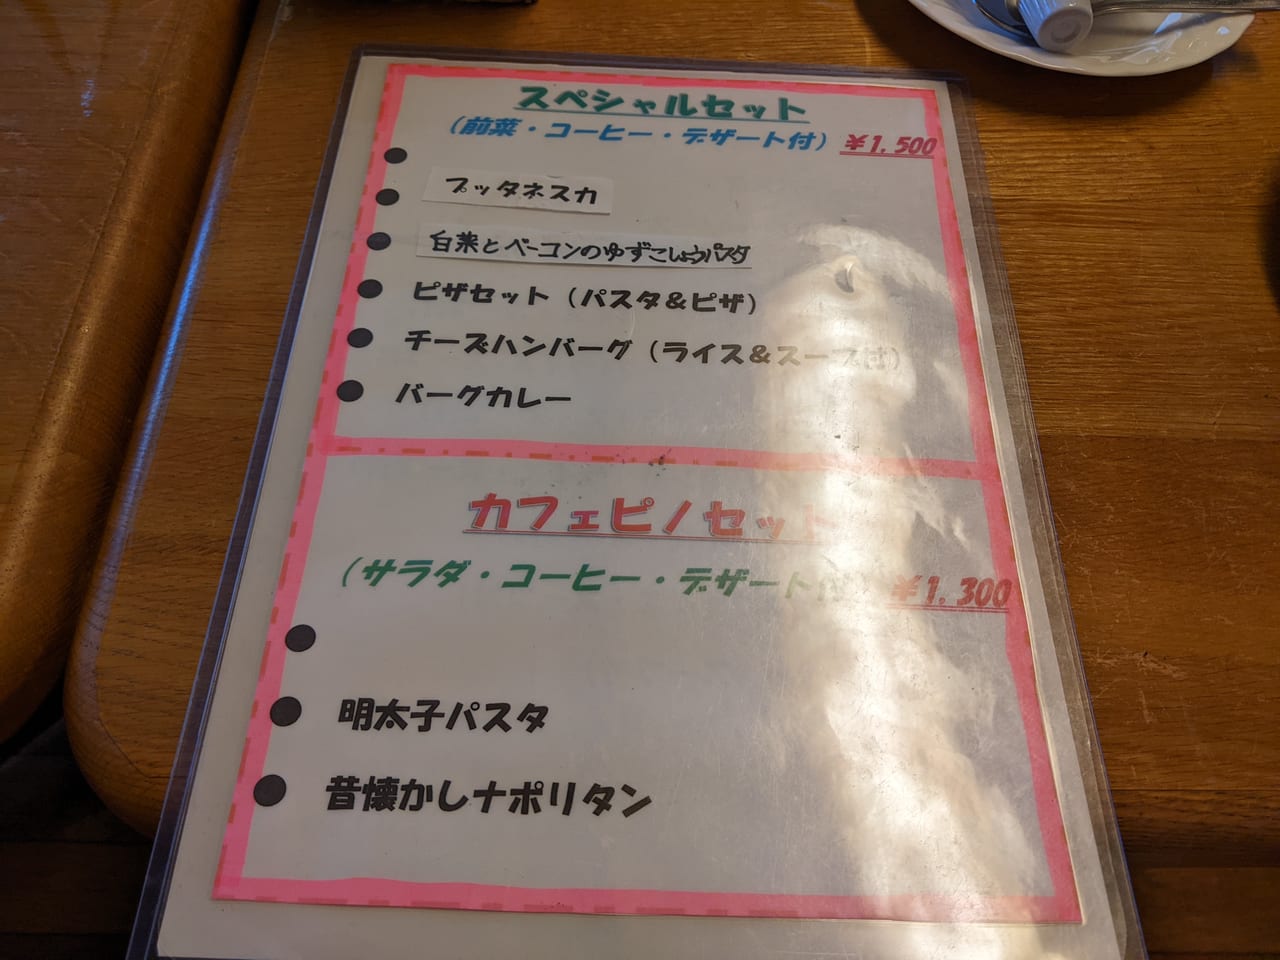 スペシャルセット
(前菜・コーヒー・デザート付) ¥1,500
● 
● プッタネスカ
● 白菜とベーコンのゆずこしょうパスタ
● ピザセット (パスタ&ピザ)
● チーズハンバーグ (ライス&スープ付)
● バーグカレー
カフェピノセット
(サラダ・コーヒー・デザート付) ¥1,300
● 
● 明太子パスタ
● 昔懐かしナポリタン